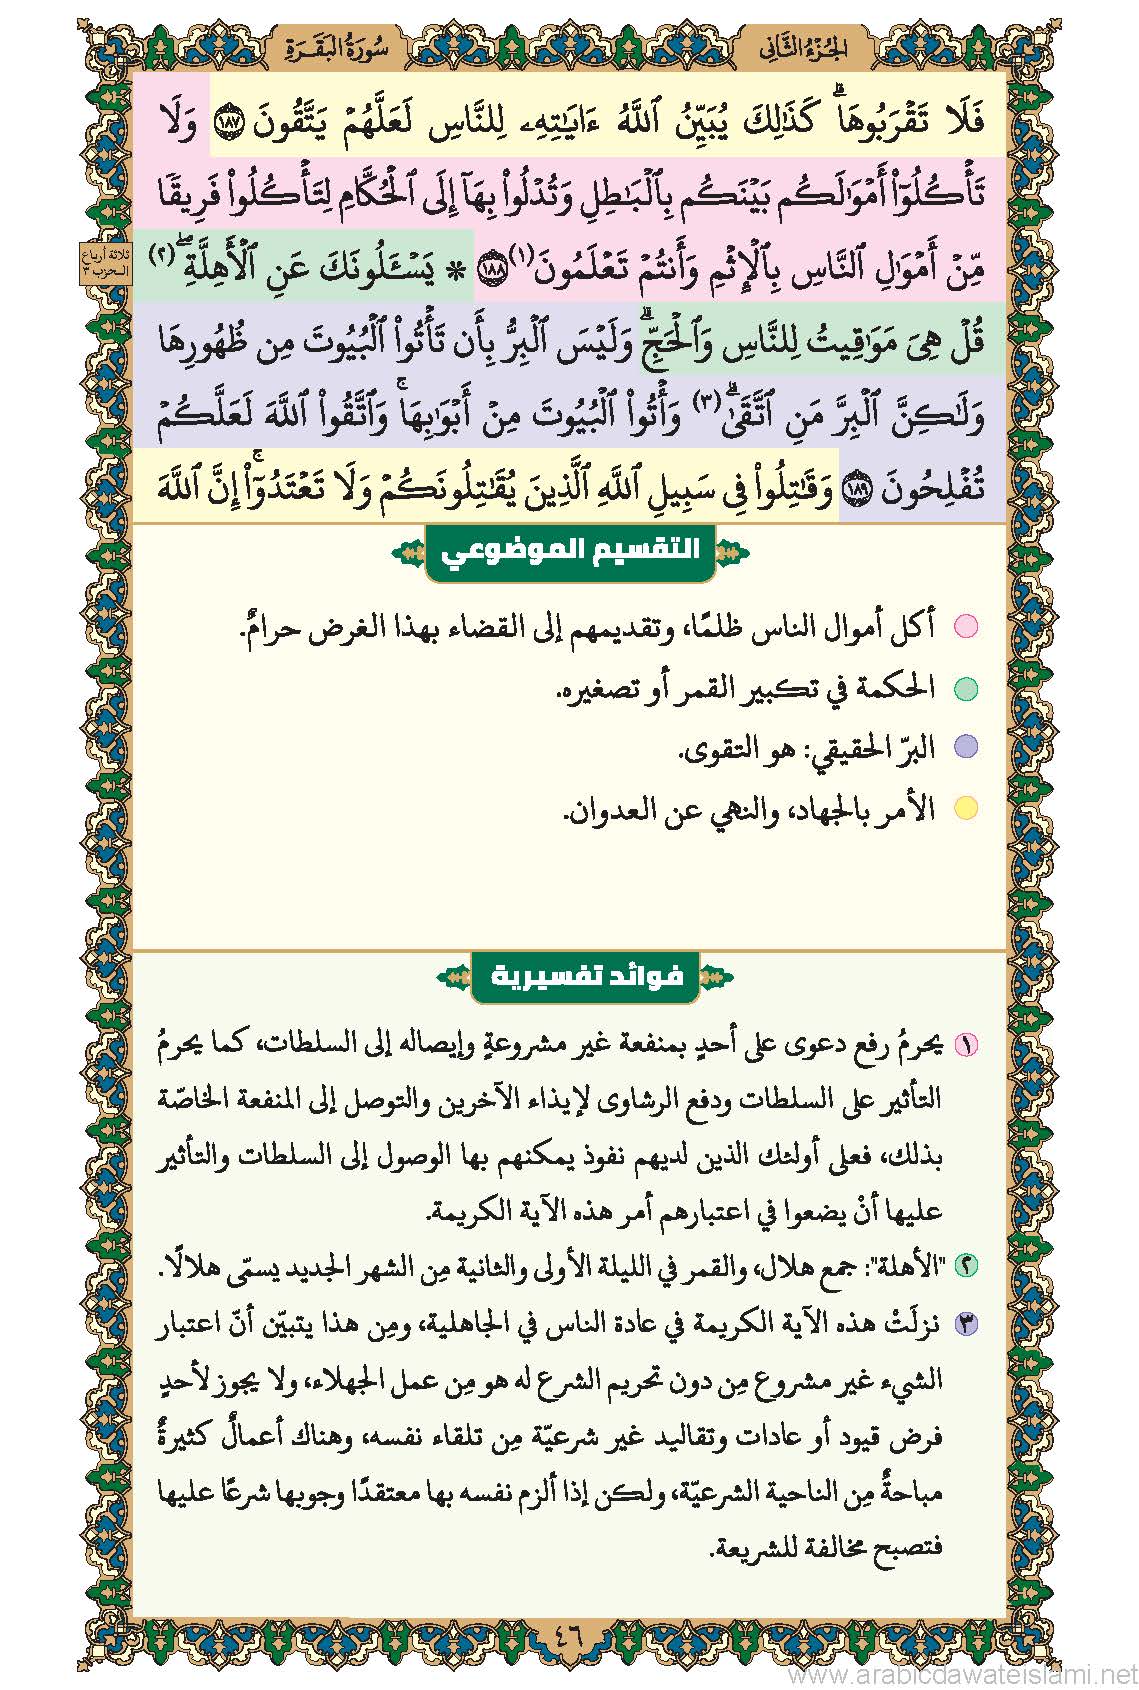 الجُزْءُ الثَّانِي
سُورَةُ البَقَرَةِ
فَلَا تَقۡرَبُوهَاۗ كَذَٰلِكَ يُبَيِّنُ ٱللَّهُ ءَايَٰتِهِۦ لِلنَّاسِ لَعَلَّهُمۡ يَتَّقُونَ ١٨٧ وَلَا
تَأۡكُلُوٓاْ أَمۡوَٰلَكُم بَيۡنَكُم بِٱلۡبَٰطِلِ وَتُدۡلُواْ بِهَآ إِلَى ٱلۡحُكَّامِ لِتَأۡكُلُواْ فَرِيقٗا
مِّنۡ أَمۡوَٰلِ ٱلنَّاسِ بِٱلۡإِثۡمِ وَأَنتُمۡ تَعۡلَمُونَ(١) ١٨٨ * يَسۡـَٔلُونَكَ عَنِ ٱلۡأَهِلَّةِۖ(٢)
ثلاثة أرباع
الحزب ٣
قُلۡ هِيَ مَوَٰقِيتُ لِلنَّاسِ وَٱلۡحَجِّۗ وَلَيۡسَ ٱلۡبِرُّ بِأَن تَأۡتُواْ ٱلۡبُيُوتَ مِن ظُهُورِهَا
وَلَٰكِنَّ ٱلۡبِرَّ مَنِ ٱتَّقَىٰۗ(٣) وَأۡتُواْ ٱلۡبُيُوتَ مِنۡ أَبۡوَٰبِهَاۚ وَٱتَّقُواْ ٱللَّهَ لَعَلَّكُمۡ
تُفۡلِحُونَ ١٨٩ وَقَٰتِلُواْ فِي سَبِيلِ ٱللَّهِ ٱلَّذِينَ يُقَٰتِلُونَكُمۡ وَلَا تَعۡتَدُوٓاْۚ إِنَّ ٱللَّهَ
التقسيم الموضوعي
أكل أموال الناس ظلمًا، وتقديمهم إلى القضاء بهذا الغرض حرامٌ.
الحكمة في تكبير القمر أو تصغيره.
البرّ الحقيقي: هو التقوى.
الأمر بالجهاد، والنهي عن العدوان.
فوائد تفسيرية
١ يحرمُ رفع دعوى على أحدٍ بمنفعة غير مشروعةٍ وإيصاله إلى السلطات، كما يحرمُ
التأثير على السلطات ودفع الرشاوى لإيذاء الآخرين والتوصل إلى المنفعة الخاصّة
بذلك، فعلى أولئك الذين لديهم نفوذ يمكنهم بها الوصول إلى السلطات والتأثير
عليها أنْ يضعوا في اعتبارهم أمر هذه الآية الكريمة.
٢ "الأهلة": جمع هلال، والقمر في الليلة الأولى والثانية مِن الشهر الجديد يسمّى هلالًا.
٣ نزلَتْ هذه الآية الكريمة في عادة الناس في الجاهلية، ومِن هذا يتبيّن أنّ اعتبار
الشيء غير مشروع مِن دون تحريم الشرع له هو مِن عمل الجهلاء، ولا يجوز لأحدٍ
فرض قيود أو عادات وتقاليد غير شرعيّة مِن تلقاء نفسه، وهناك أعمالٌ كثيرةٌ
مباحةٌ مِن الناحية الشرعيّة، ولكن إذا ألزم نفسه بها معتقدًا وجوبها شرعًا عليها
فتصبح مخالفة للشريعة.
٤٦
www.arabicdawateislami.net